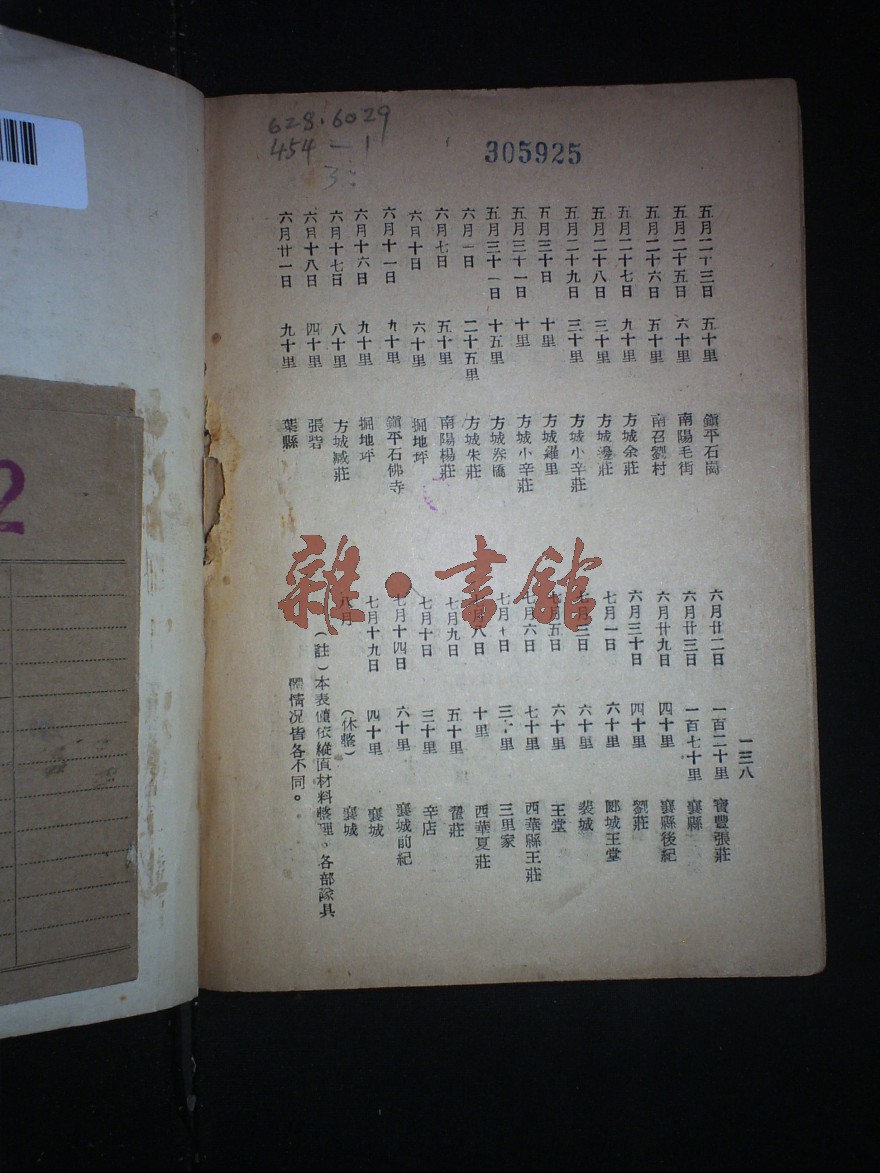 628.6029
454-1
3:
305925
一三八
五月二十三日 五十里 鎮平石崗
五月二十五日 六十里 南陽毛街
五月二十六日 五十里 南召劉村
五月二十七日 九十里 方城余莊
五月二十八日 三十里 方城 莊
五月二十九日 三十里 方城小辛莊
五月三十日 十里 方城羅里
五月三十一日 十里 方城小辛莊
五月三十一日 十五里 方城券橋
六月一日 二十五里 方城朱莊
六月七日 五十里 南陽楊莊
六月十日 六十里 掘地坪
六月十一日 九十里 鎮平石佛寺
六月十六日 九十里 掘地坪
六月十七日 八十里 方城臧莊
六月十八日 四十里 張砦
六月廿一日 九十里 葉縣
六月廿二日 一百二十里 寶豐張莊
六月廿三日 一百七十里 襄縣
六月廿九日 四十里 襄縣後紀
六月三十日 四十里 劉莊
七月一日 六十里 郾城王堂
月三日 六十里 裴城
月五日 六十里 王堂
七月六日 七十里 西華縣王莊
七月七日 三十里 三里家
月八日 十里 西華夏莊
七月九日 五十里 翟莊
七月十日 三十里 辛店
七月十四日 六十里 襄城前紀
七月十九日 四十里 襄城
八月 (休整) 襄城
(註)本表僅依縱直材料整理。各部隊具
體情况皆各不同。
雜·書館
2